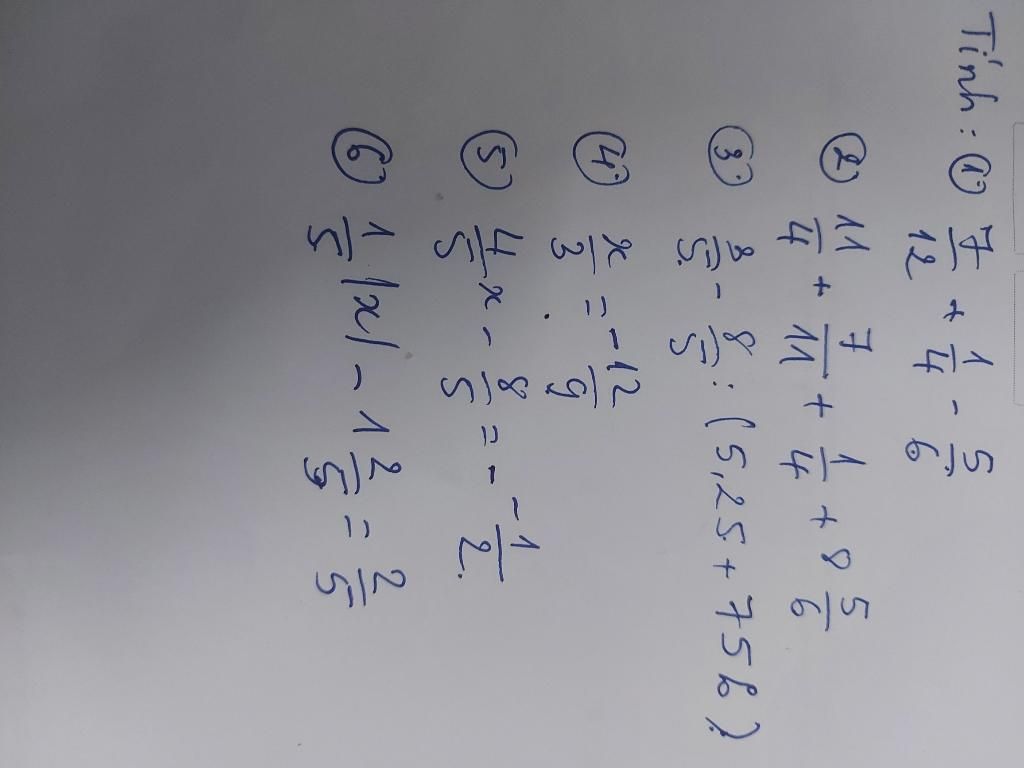 Tính: ① 7/12 + 1/4 - 5/6
② 11/4 + 7/11 + 1/4 + 8 5/6
③ 2/5 - 8/5 : (5,25 + 75%)
④ x/3 = -12/9
⑤ 4/5 x - 8/5 = - -1/2
⑥ 1/5 |x| - 1 2/5 = 2/5